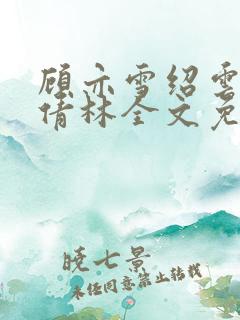 顾亦雪绍雲
倩林全文免
晓七景
未经同意禁止转载